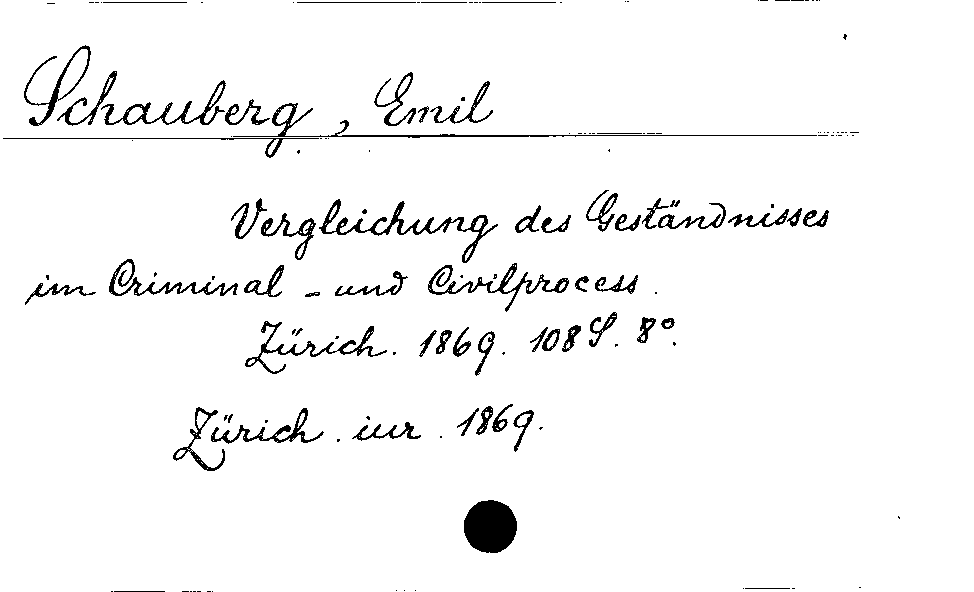 Schauberg, Emil
Vergleichung des Geständnisses
im Criminal - und Civilprocess.
Zürich. 1869. 108 S. 8°.
Zürich. iur. 1869.